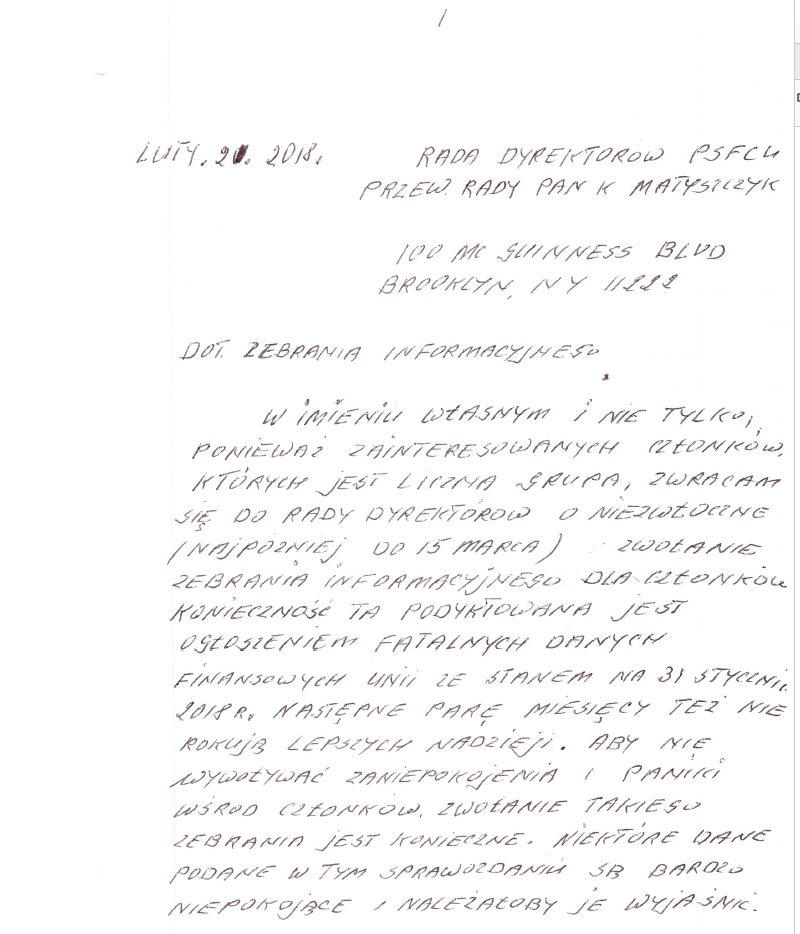 1
LUTY. 20. 2018. RADA DYREKTOROW PSFCU
PRZEW. RADY PAN K MATYSZCZYK
100 MC GUINNESS BLVD
BROOKLYN, NY 11222
DOT. ZEBRANIA INFORMACYJNEGO
W IMIENIU WŁASNYM I NIE TYLKO,
PONIEWAŻ ZAINTERESOWANYCH CZŁONKÓW,
KTÓRYCH JEST LICZNA GRUPA, ZWRACAM
SIĘ DO RADY DYREKTÓROW O NIEZWŁOCZNE
(NAJPOZNIEJ DO 15 MARCA) ZWOŁANIE
ZEBRANIA INFORMACYJNEGO DLA CZŁONKÓW
KONIECZNOŚĆ TA PODYKTOWANA JEST
OGŁOSZENIEM FATALNYCH DANYCH
FINANSOWYCH UNII ZE STANEM NA 31 STYCZNIA
2018 R. NASTĘPNE PARĘ MIESIĘCY TEŻ NIE
ROKUJĄ LEPSZYCH NADZIEJI. ABY NIE
WYWOŁYWAĆ ZANIEPOKOJENIA I PANIKI
WŚROD CZŁONKÓW, ZWOŁANIE TAKIEGO
ZEBRANIA JEST KONIECZNE. NIEKTÓRE DANE
PODANE W TYM SPRAWOZDANIU SĄ BARDZO
NIEPOKOJĄCE I NALEŻAŁOBY JE WYJAŚNIĆ.